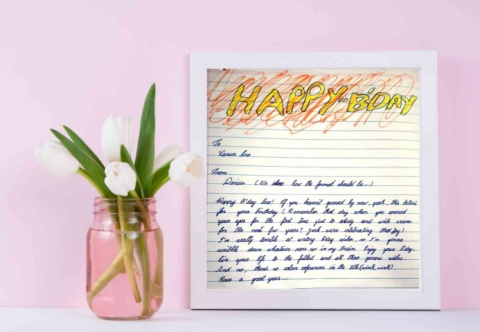 HAPPY B'DAY
To
bro
From
(No idea how the format should be...)
Happy B'day bro! If you haven't guessed by now, yeah, this letter's
for your birthday (Remember that day when you opened
your eyes for the first time just to and with
for the next few years! yeah we're celebrating that day)
I'm really terrible at writing b'day wishes, so I'm gonna
scribble down whatever is in my brain. Enjoy your b'day
live your life to the fullest and all those generic wishes
And no, there's no cakes in the (wink, wink).
Have a great year...